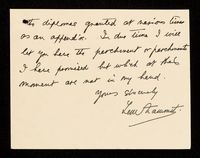 the diplomas granted at various times
as an appendix. In due time I will
let you have the parchment or parchments
I have promised but which at this
moment are not in my hand.
Yours sincerely